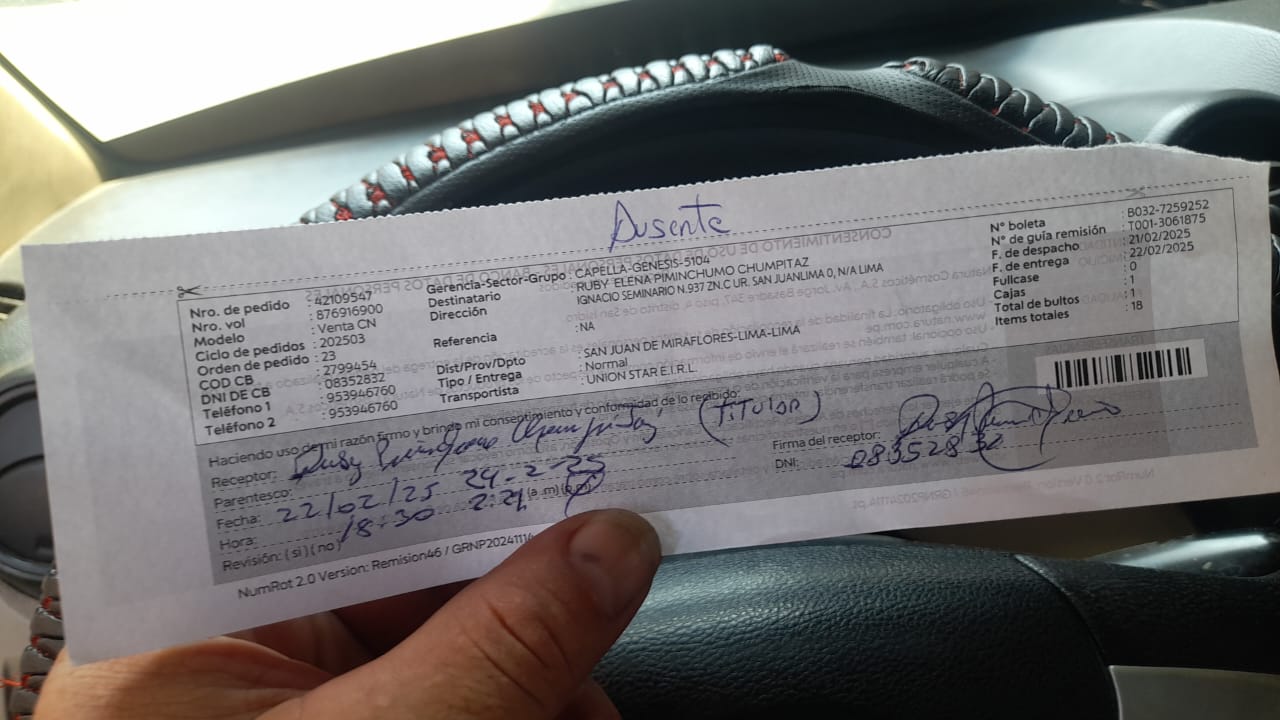 Ausente
Nro. de pedido : 42109547
Nro. vol : 876916900
Modelo : Venta CN
Ciclo de pedidos : 202503
Orden de pedido : 23
COD CB : 2799454
DNI DE CB : 08352832
Teléfono 1 : 953946760
Teléfono 2 : 953946760
Gerencia-Sector-Grupo : CAPELLA-GENESIS-5104
Destinatario : RUBY ELENA PIMINCHUMO CHUMPITAZ
Dirección : IGNACIO SEMINARIO N.937 ZN.C UR. SAN JUANLIMA 0, N/A LIMA
Referencia : NA
Dist/Prov/Dpto : SAN JUAN DE MIRAFLORES-LIMA-LIMA
Tipo / Entrega : Normal
Transportista : UNION STAR E.I.R.L.
N° boleta : B032-7259252
N° de guía remisión : T001-3061875
F. de despacho : 21/02/2025
F. de entrega : 22/02/2025
Fullcase : 0
Cajas : 1
Total de bultos : 1
Items totales : 18
Haciendo uso de mi razón firmo y brindo mi consentimiento y conformidad de lo recibido:
Receptor: (TITULAR)
Parentesco:
Fecha: 22/02/25 24-2-25
Hora: 18:30 2:21 (a.m) (p.m)
Revisión: ( si ) ( no )
Firma del receptor:
DNI: 08352832
NumRot 2.0 Version: Remision46 / GRNP20241114